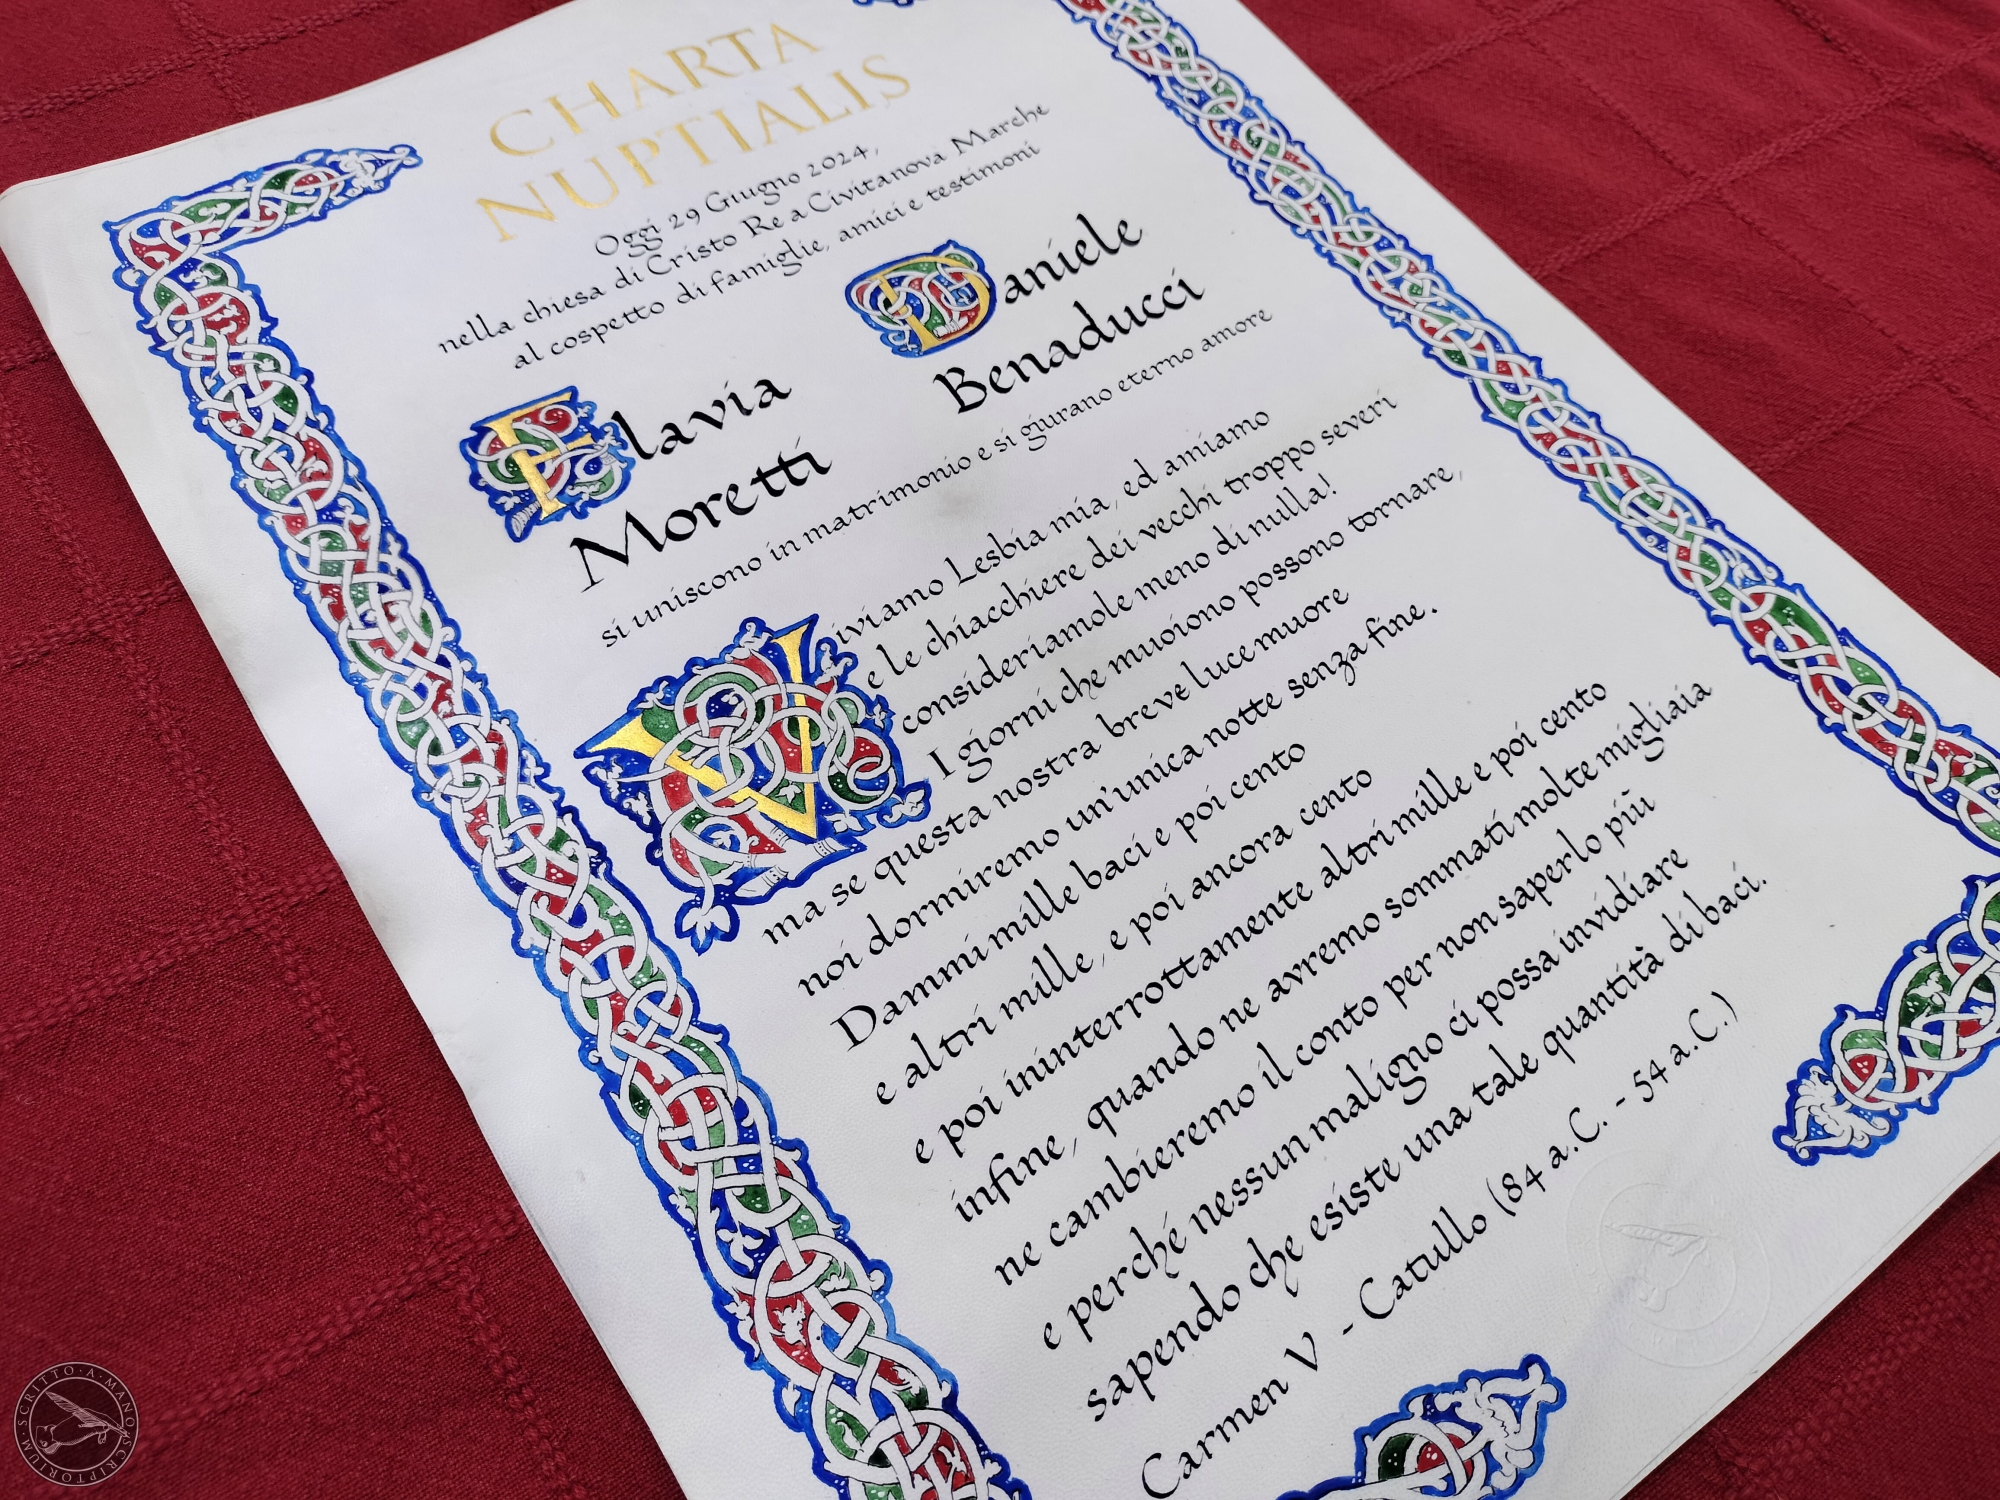 CHARTA
NUPTIALIS
Oggi 29 Giugno 2024,
nella chiesa di Cristo Re a Civitanova Marche
al cospetto di famiglie, amici e testimoni
Flavia
Moretti
Daniele
Benaducci
si uniscono in matrimonio e si giurano eterno amore
Viviamo Lesbia mia, ed amiamo
e le chiacchiere dei vecchi troppo severi
consideriamole meno di nulla!
I giorni che muoiono possono tornare,
ma se questa nostra breve luce muore
noi dormiremo un'unica notte senza fine.
Dammi mille baci e poi cento
e altri mille, e poi ancora cento
e poi ininterrottamente altri mille e poi cento
infine, quando ne avremo sommati molte migliaia
ne cambieremo il conto per non saperlo più
e perché nessun maligno ci possa invidiare
sapendo che esiste una tale quantità di baci.
Carmen V - Catullo (84 a.C. - 54 a.C.)
SCRITTO·A·MANO·SCRIPTORIUM·